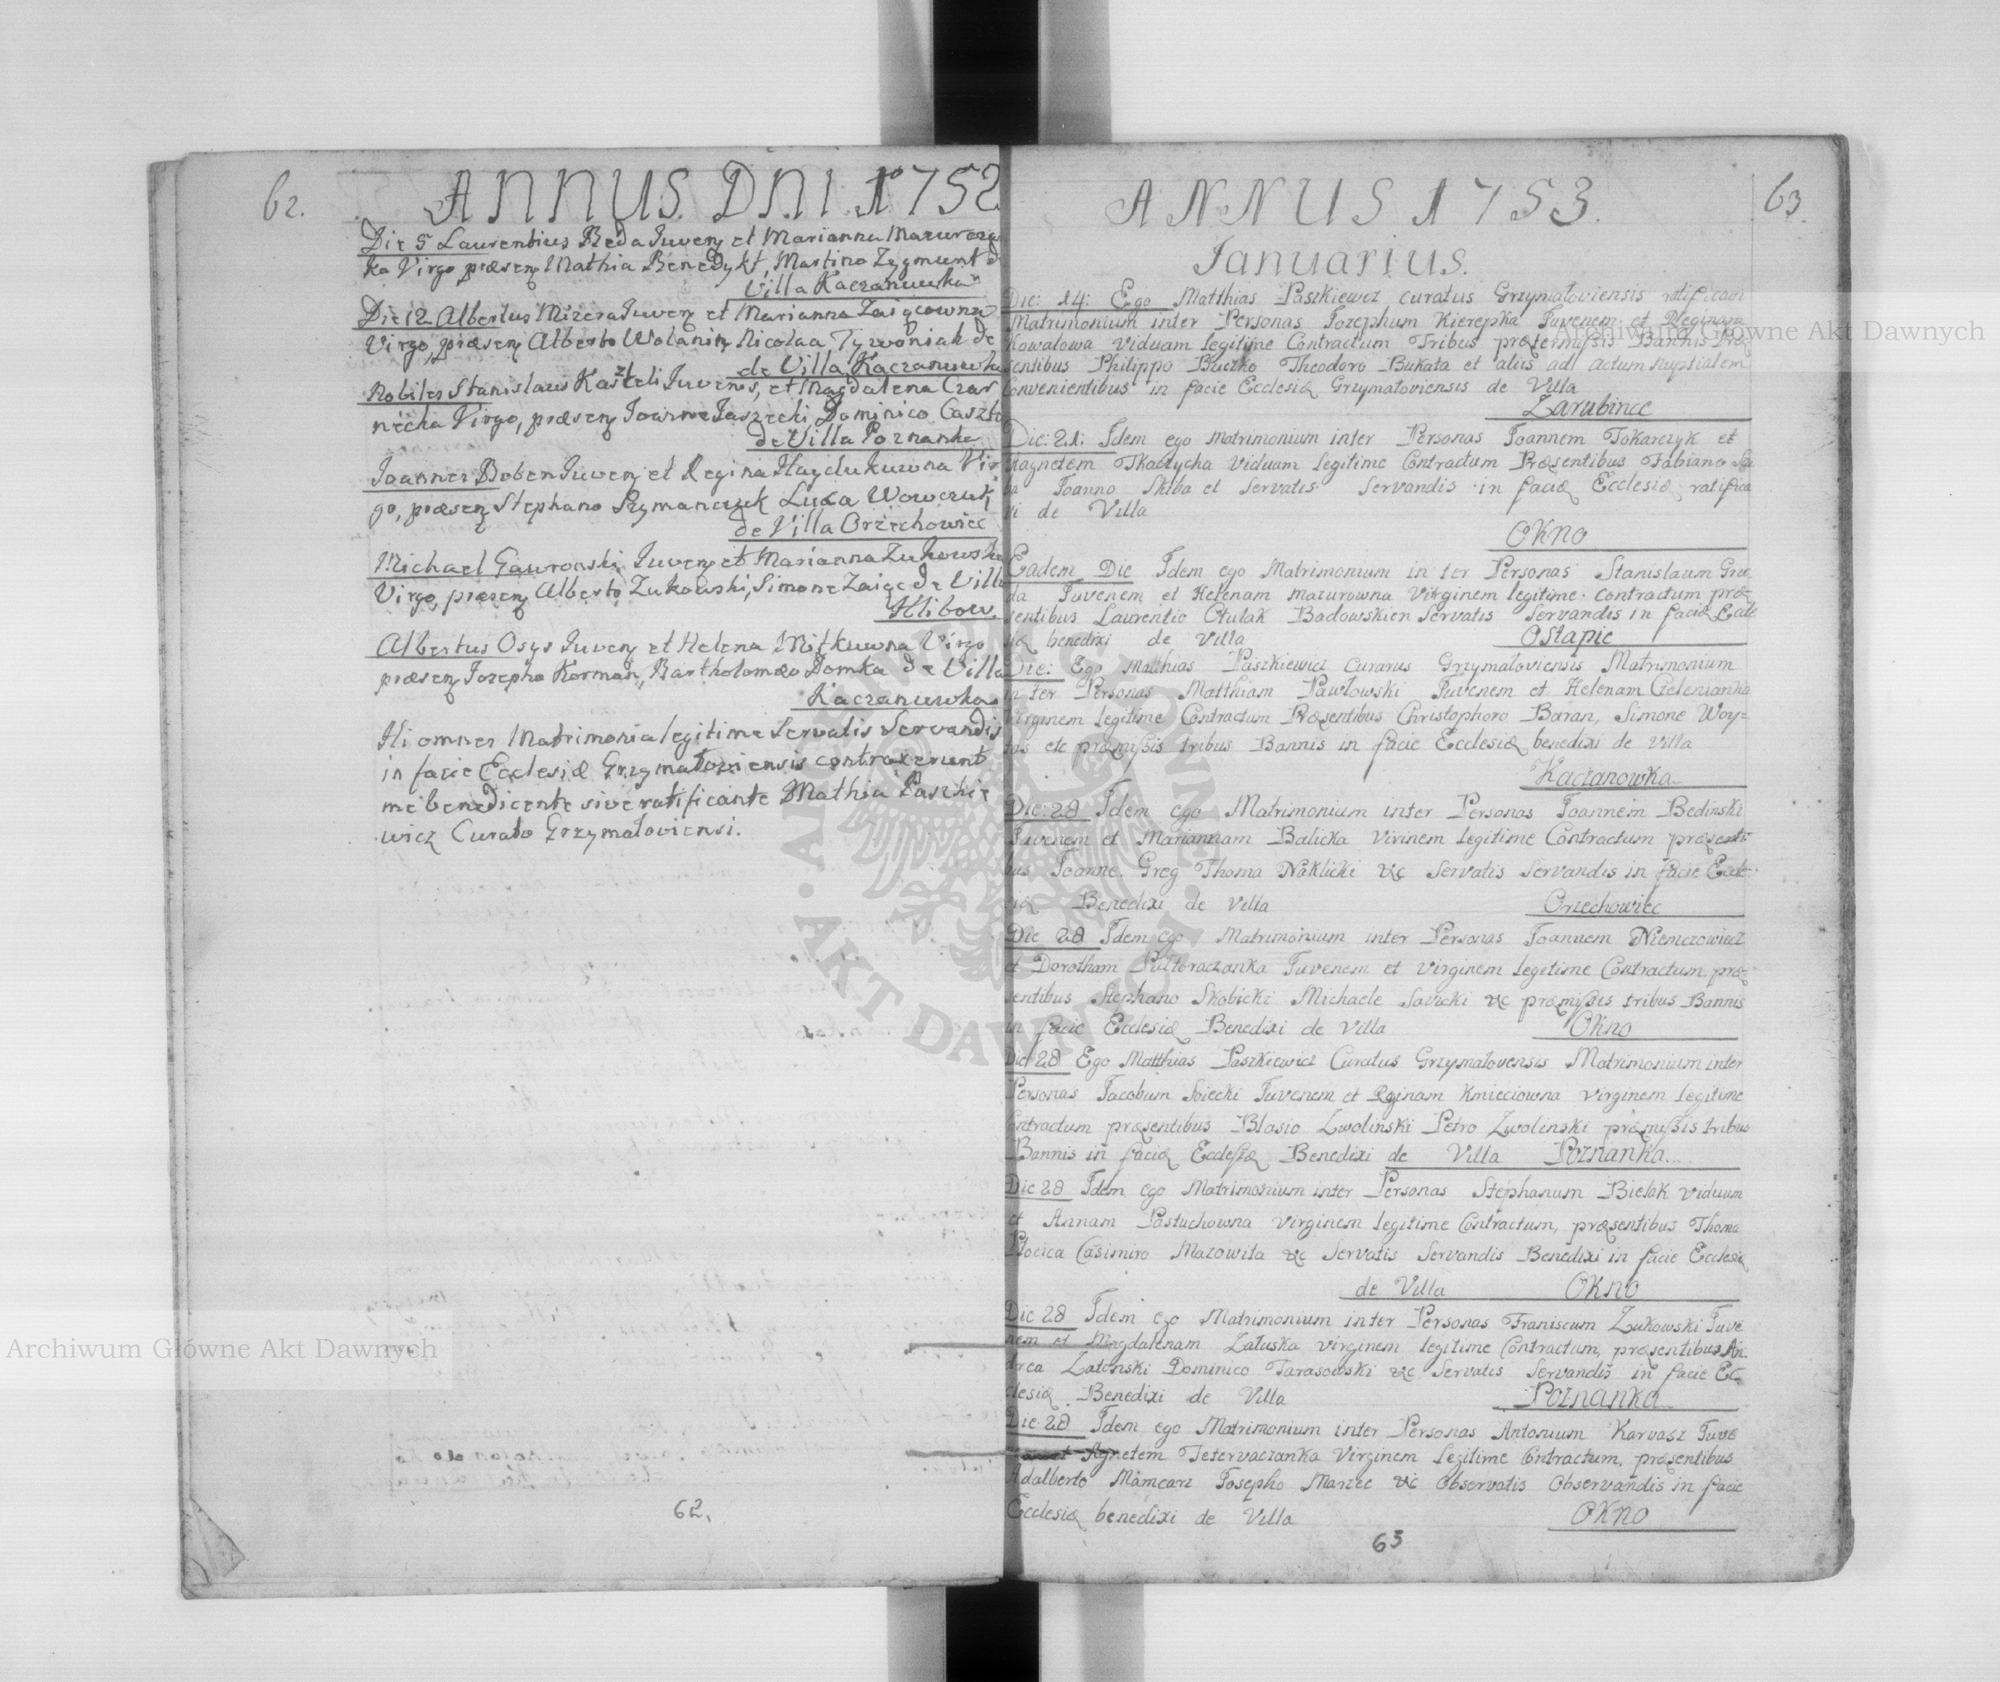 62.
ANNUS DNI 1752
Die 5 Laurentius Reda Juvenę et Marianna Mazurczą
ka Virgo præsenę Mathia Benedykt, Martino Zygmunt d
Villa Kaczanuwka
Die 12 Albertus Mizera Juvenę et Marianna Zaiącowna
Virgo, præsenę Alberto Wolanin, Nicolaa Tywoniak de
de Villa Kaczanuwka
Nobiles Stanislaus Kaszteli Juvenis, et Magdalena Czar
niecka Virgo, præsenę Joanne Jaszecki, Dominico Caszte
de Villa Poznanka
Joannes Boben Juvenę et Regina Haydukuwna Vir
go, præsenę Stephano Szymanczuk Luca Wowczuk,
de Villa Orzechowiec
Michael Gawronski Juvenę et Marianna Zukowska
Virgo, præsenę Alberto Zukowski, Simone Zaiąc de Villa
Hlibow
Albertus Osys Juvenę et Helena Mitkuwna Virgo
præsenę Jozepho Korman, Bartholomæo Domka de Villa
Kaczanuwka
Hi omnes Matrimonia legitime Servatis Servandis
in facie Ecclesiæ Grzymałoviensis contraxerunt
me benedicente sive ratificante Mathia Paszkie
wicz Curato Grzymałoviensi.
62.
63.
ANNUS 1753.
Januarius.
Die: 14: Ego Matthias Paszkiewicz curatus Grzymałoviensis ratificavi
Matrimonium inter Personas Jozephum Kierepka Juvenem et Reginam
Kowalowa Viduam legitime Contractum Tribus prætermissis Bannis Præ
sentibus Philippo Buczko Theodoro Bukata et aliis ad actum nuptialem
Convenientibus in facie Ecclesiæ Grzymałoviensis de Villa
Zarubince
Die: 21: Idem ego matrimonium inter Personas Joannem Tokarczyk et
Magnetem Tkaczycha Viduam legitime Contractum Præsentibus Fabiano
Joanno Skiba et Servatis Servandis in faciæ Ecclesiæ ratifica
vi de Villa
OKNO
Eadem Die Idem ego Matrimonium in ter Personas Stanislaum Grze
da Juvenem et Helenam mazurowna Virginem legitime contractum præ=
sentibus Laurentio Otulak Badowskien Servatis Servandis in faciæ Eccle
siæ benedixi de Villa
Ostapie
Die: Ego Matthias Paszkiewicz Curatus Grzymałoviensis Matrimonium
in ter Personas Matthiam Pawłowski Juvenem et Helenam Cielenianka
Virginem legitime Contractum Præsentibus Christophoro Baran, Simone Woy=
tas etc præmissis tribus Bannis in facie Ecclesiæ benedixi de Villa
Kaczanowka
Die: 28 Idem ego Matrimonium inter Personas Joannem Bedinski
Juvenem et Mariannam Balicka Virinem legitime Contractum præsenti
bus Joanne Greg Thoma Naklicki &c Servatis Servandis in facie Eccle
siæ Benedixi de Villa
Orzechowiec
Die 28 Idem ego Matrimonium inter Personas Joannem Niemczowicz
et Dorotham Pułtoraczanka Juvenem et Virginem legitime Contractum, præ=
sentibus Stephano Skobicki Michaele Savicki &c præmissis tribus Bannis
in facie Ecclesiæ Benedixi de Villa
Okno
Die 28 Ego Matthias Paszkiewicz Curatus Grzymałovensis Matrimonium inter
Personas Jacobum Soiecki Juvenem et Reginam Kmieciowna Virginem legitime
Contractum præsentibus Blasio Zwolinski Petro Zwolinski præmissis tribus
Bannis in faciæ Ecclesiæ Benedixi de Villa Poznanka.
Die 28 Idem ego Matrimonium inter Personas Stephanum Bielak Viduum
et Annam Pastuchowna Virginem legitime Contractum, præsentibus Thoma
Płocica Casimiro Mazowita &c Servatis Servandis Benedixi in facie Ecclesiæ
de Villa OKNO
Die 28 Idem ego Matrimonium inter Personas Franiscum Zukowski Juve
nem et Magdalenam Załuska Virginem legitime Contractum, præsentibus An=
drea Latonski Dominico Tarasowski &c Servatis Servandis in facie Ec
clesiæ Benedixi de Villa
Poznanka
Die 28 Idem ego Matrimonium inter Personas Antonium Karvasz Juve
et Agnetem Tetervaczanka Virginem legitime Contractum, præsentibus
Adalberto Mamcarz Josepho Marzec &c Observatis Observandis in facie
Ecclesiæ benedixi de Villa
OKNO
63
Archiwum Główne Akt Dawnych
Archiwum Główne Akt Dawnych
ARCHIWUM GŁÓWNE AKT DAWNYCH